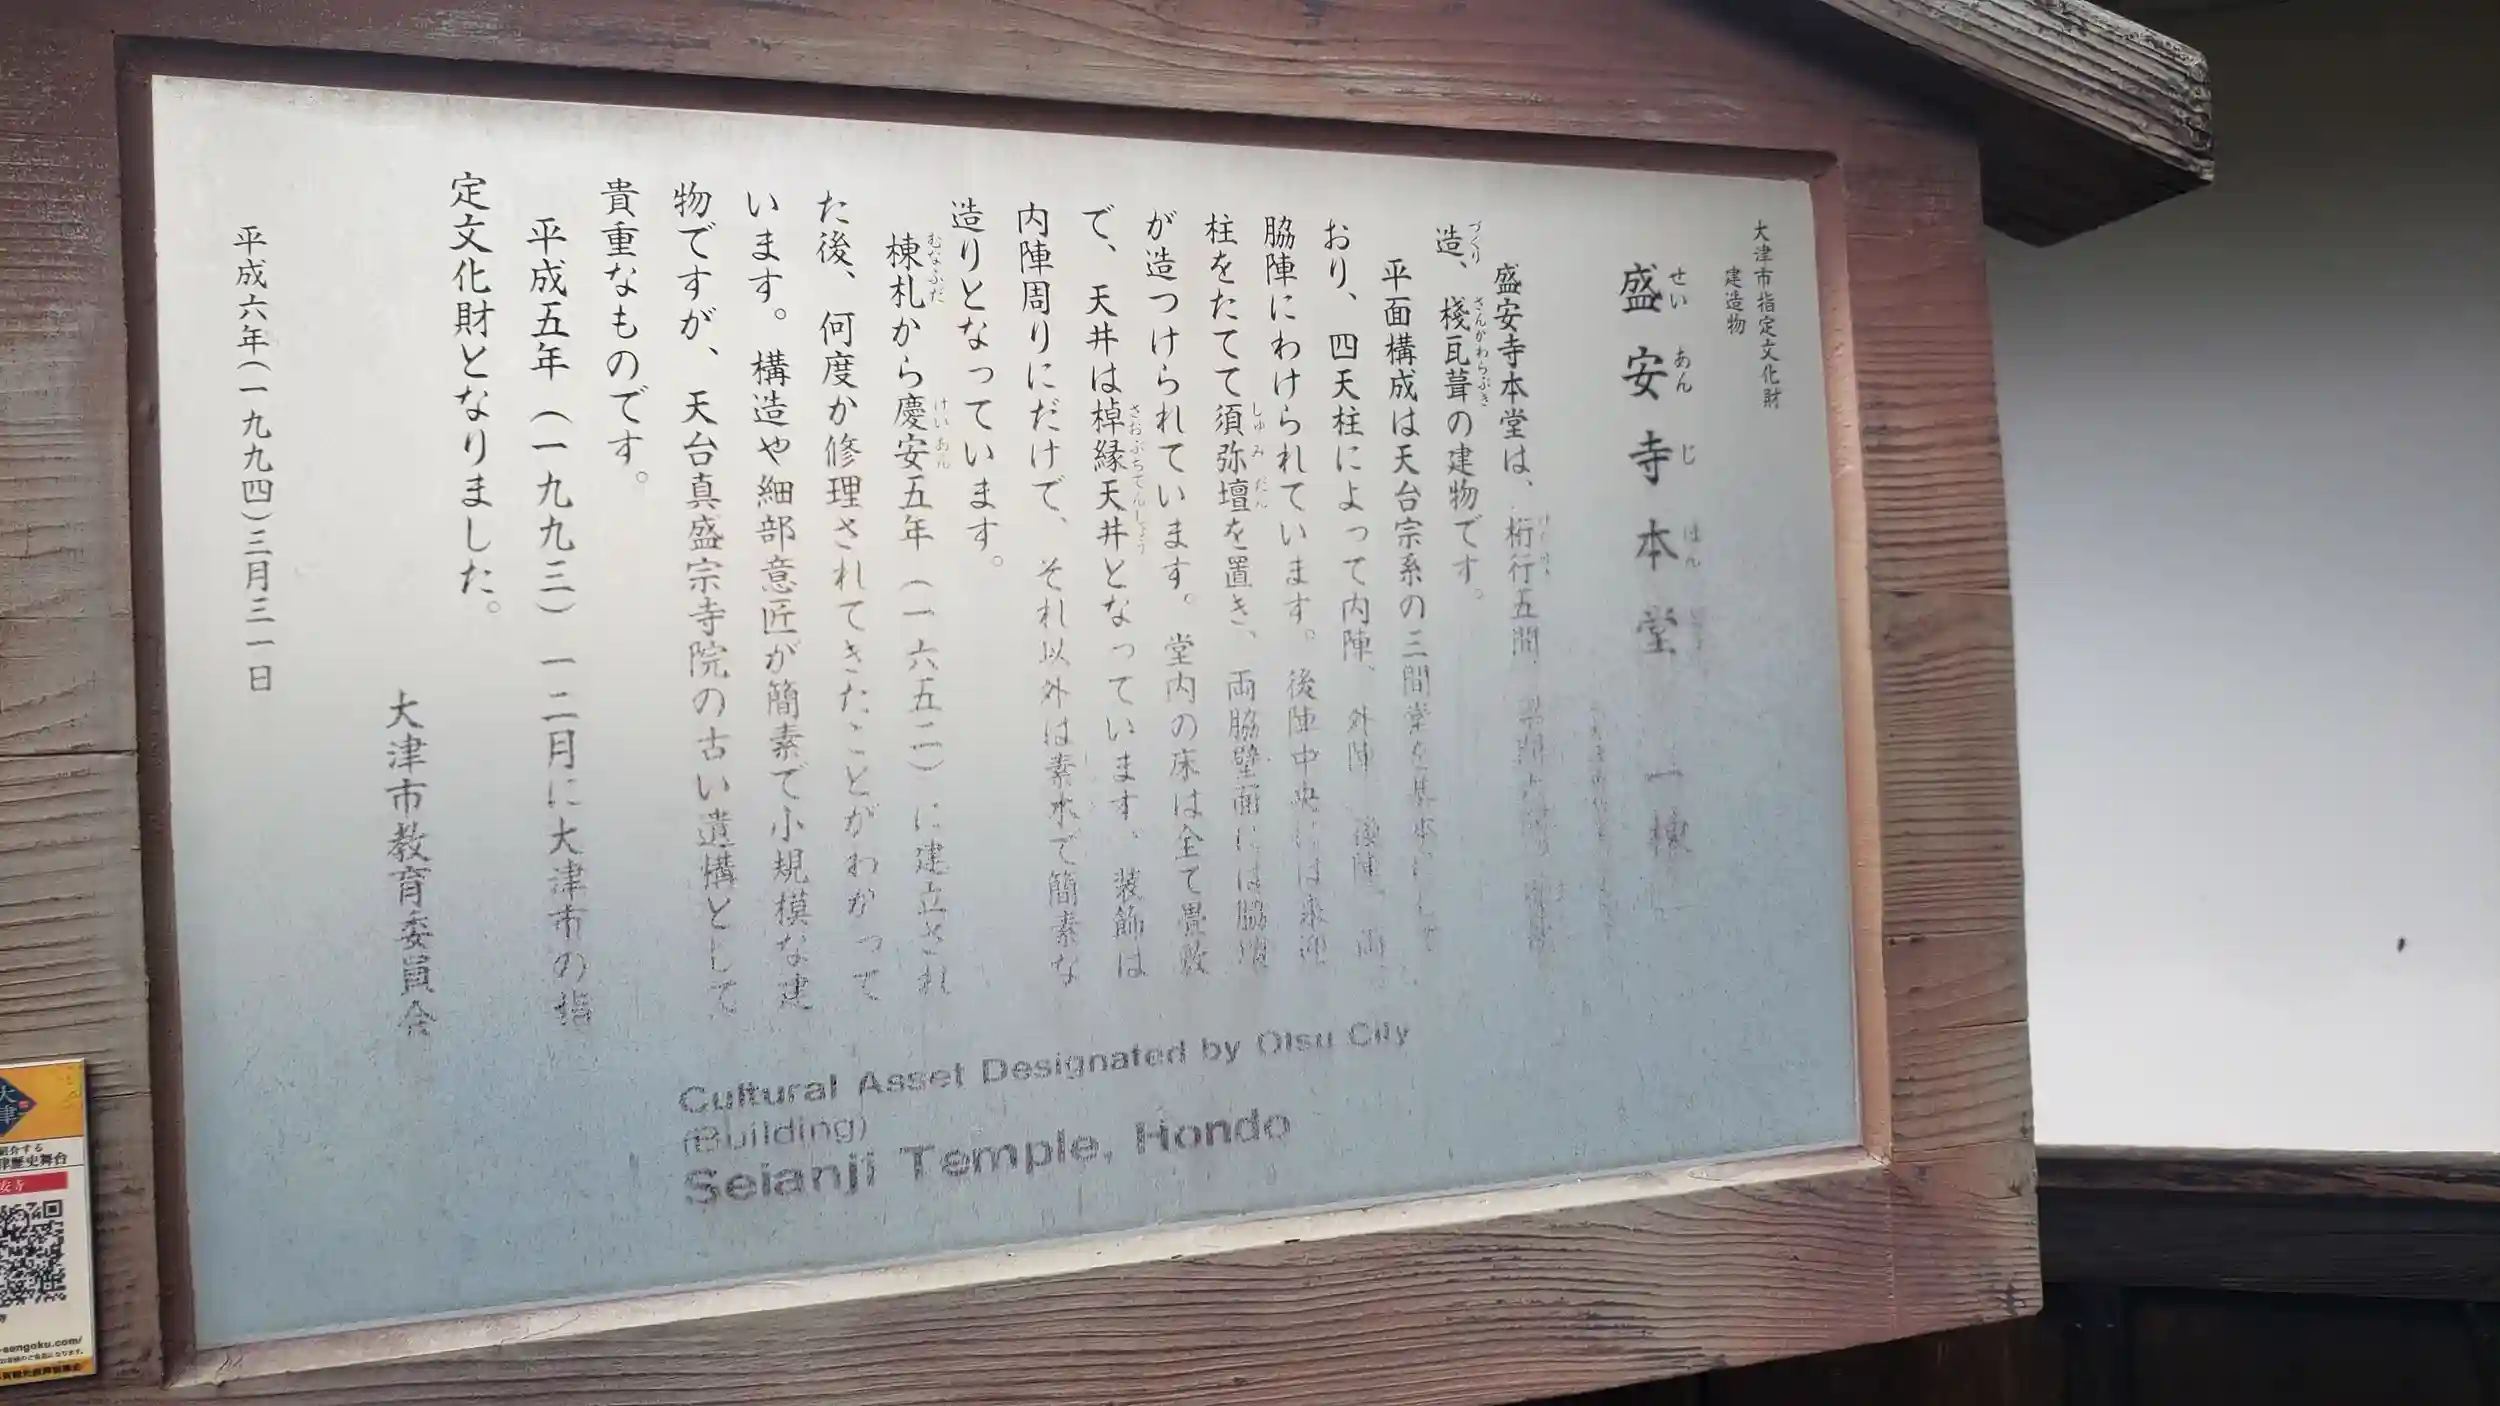 大津市指定文化財
建造物
盛安寺本堂 一棟
せい あん じ ほん
盛安寺本堂は、桁行五間、
造、棧瓦葺の建物です。
づくり さんがわらぶき
平面構成は天台宗系の三間堂を基本にして
おり、四天柱によって内陣、外陣、後陣、両
脇陣にわけられています。後陣中央には来迎
柱をたてて須弥壇を置き、両脇壁面には脇壇
しゅみだん
が造つけられています。堂内の床は全て畳敷
で、天井は棹縁天井となっています。装飾は
さおぶちてんじょう
内陣周りにだけで、それ以外は素木で簡素な
造りとなっています。
棟札から慶安五年(一六五二)に建立され
むなふだ けいあん
た後、何度か修理されてきたことがわかって
います。構造や細部意匠が簡素で小規模な建
物ですが、天台真盛宗寺院の古い遺構として
貴重なものです。
平成五年(一九九三)一二月に大津市の指
定文化財となりました。
大津市教育委員会
平成六年(一九九四)三月三一日
Cultural Asset Designated by Otsu City
(Building)
Seianji Temple, Hondo
大津
紹介する
津歴史舞台
安寺
-sengoku.com/